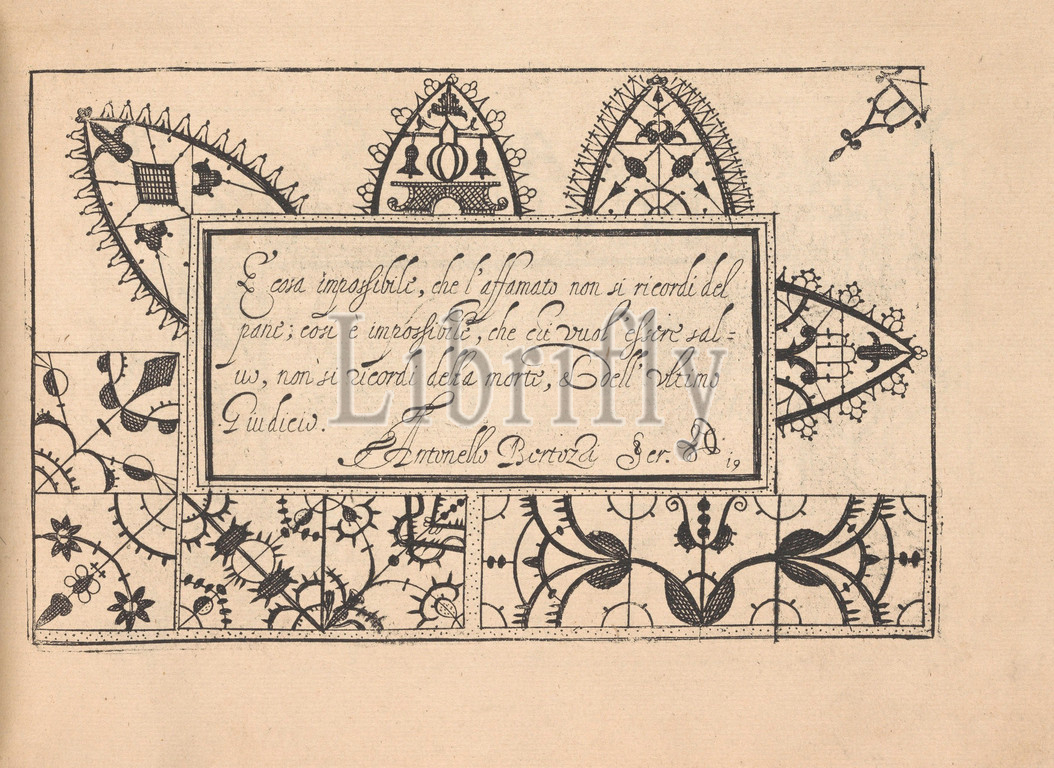 E cosa impossibile, che l'affamato non si ricordi del
pane; cosi è impossibile, che chi vuol' essere sal=
uo, non si ricordi della morte, & dell' vltimo
Giudicio.
Antonello Bertozzi Scr.
19
Librifly